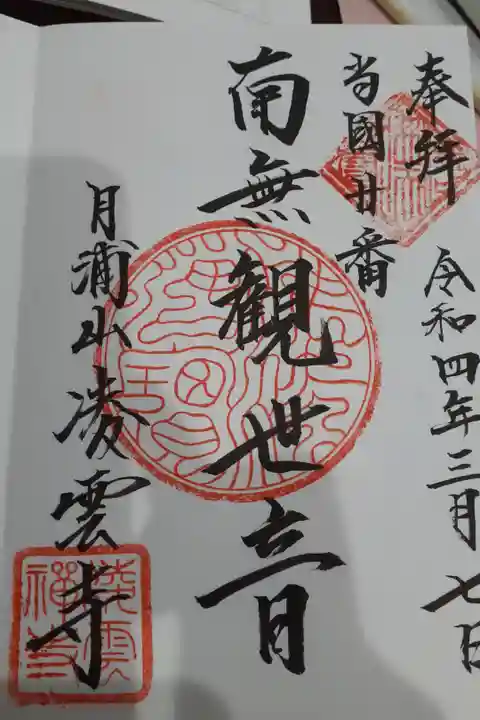 奉拜
令和四年三月七日
当國廿番
南無観世音
月浦山凌雲寺
凌雲禅寺